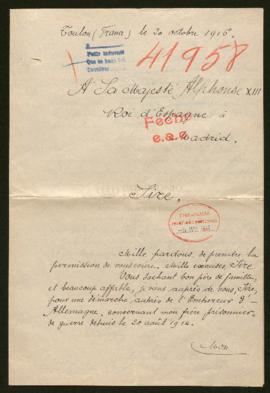 Toulon (France) le 20 octobre 1916.
41958
A Sa Majesté Alphonse XIII
Roi d'Espagne à
Madrid.
Sire.
Mille pardons, de prendre la
permission de vous écrire, Mille excuses Sire
Vous sachant bon père de famille,
et beaucoup affable, je viens auprès de vous, Sire,
pour une démarche, auprès de l'Empereur d'
Allemagne, concernant mon frère prisonnier
de guerre depuis le 20 août 1914.